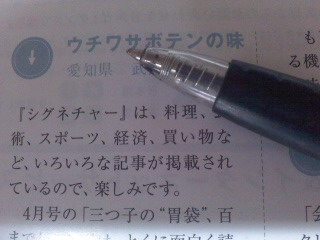 ウチワサボテンの味
愛知県
『シグネチャー』は、料理、
術、スポーツ、経済、買い物な
ど、いろいろな記事が掲載され
ているので、楽しみです。
4月号の「三つ子の“胃袋”、百
も
る機
「会